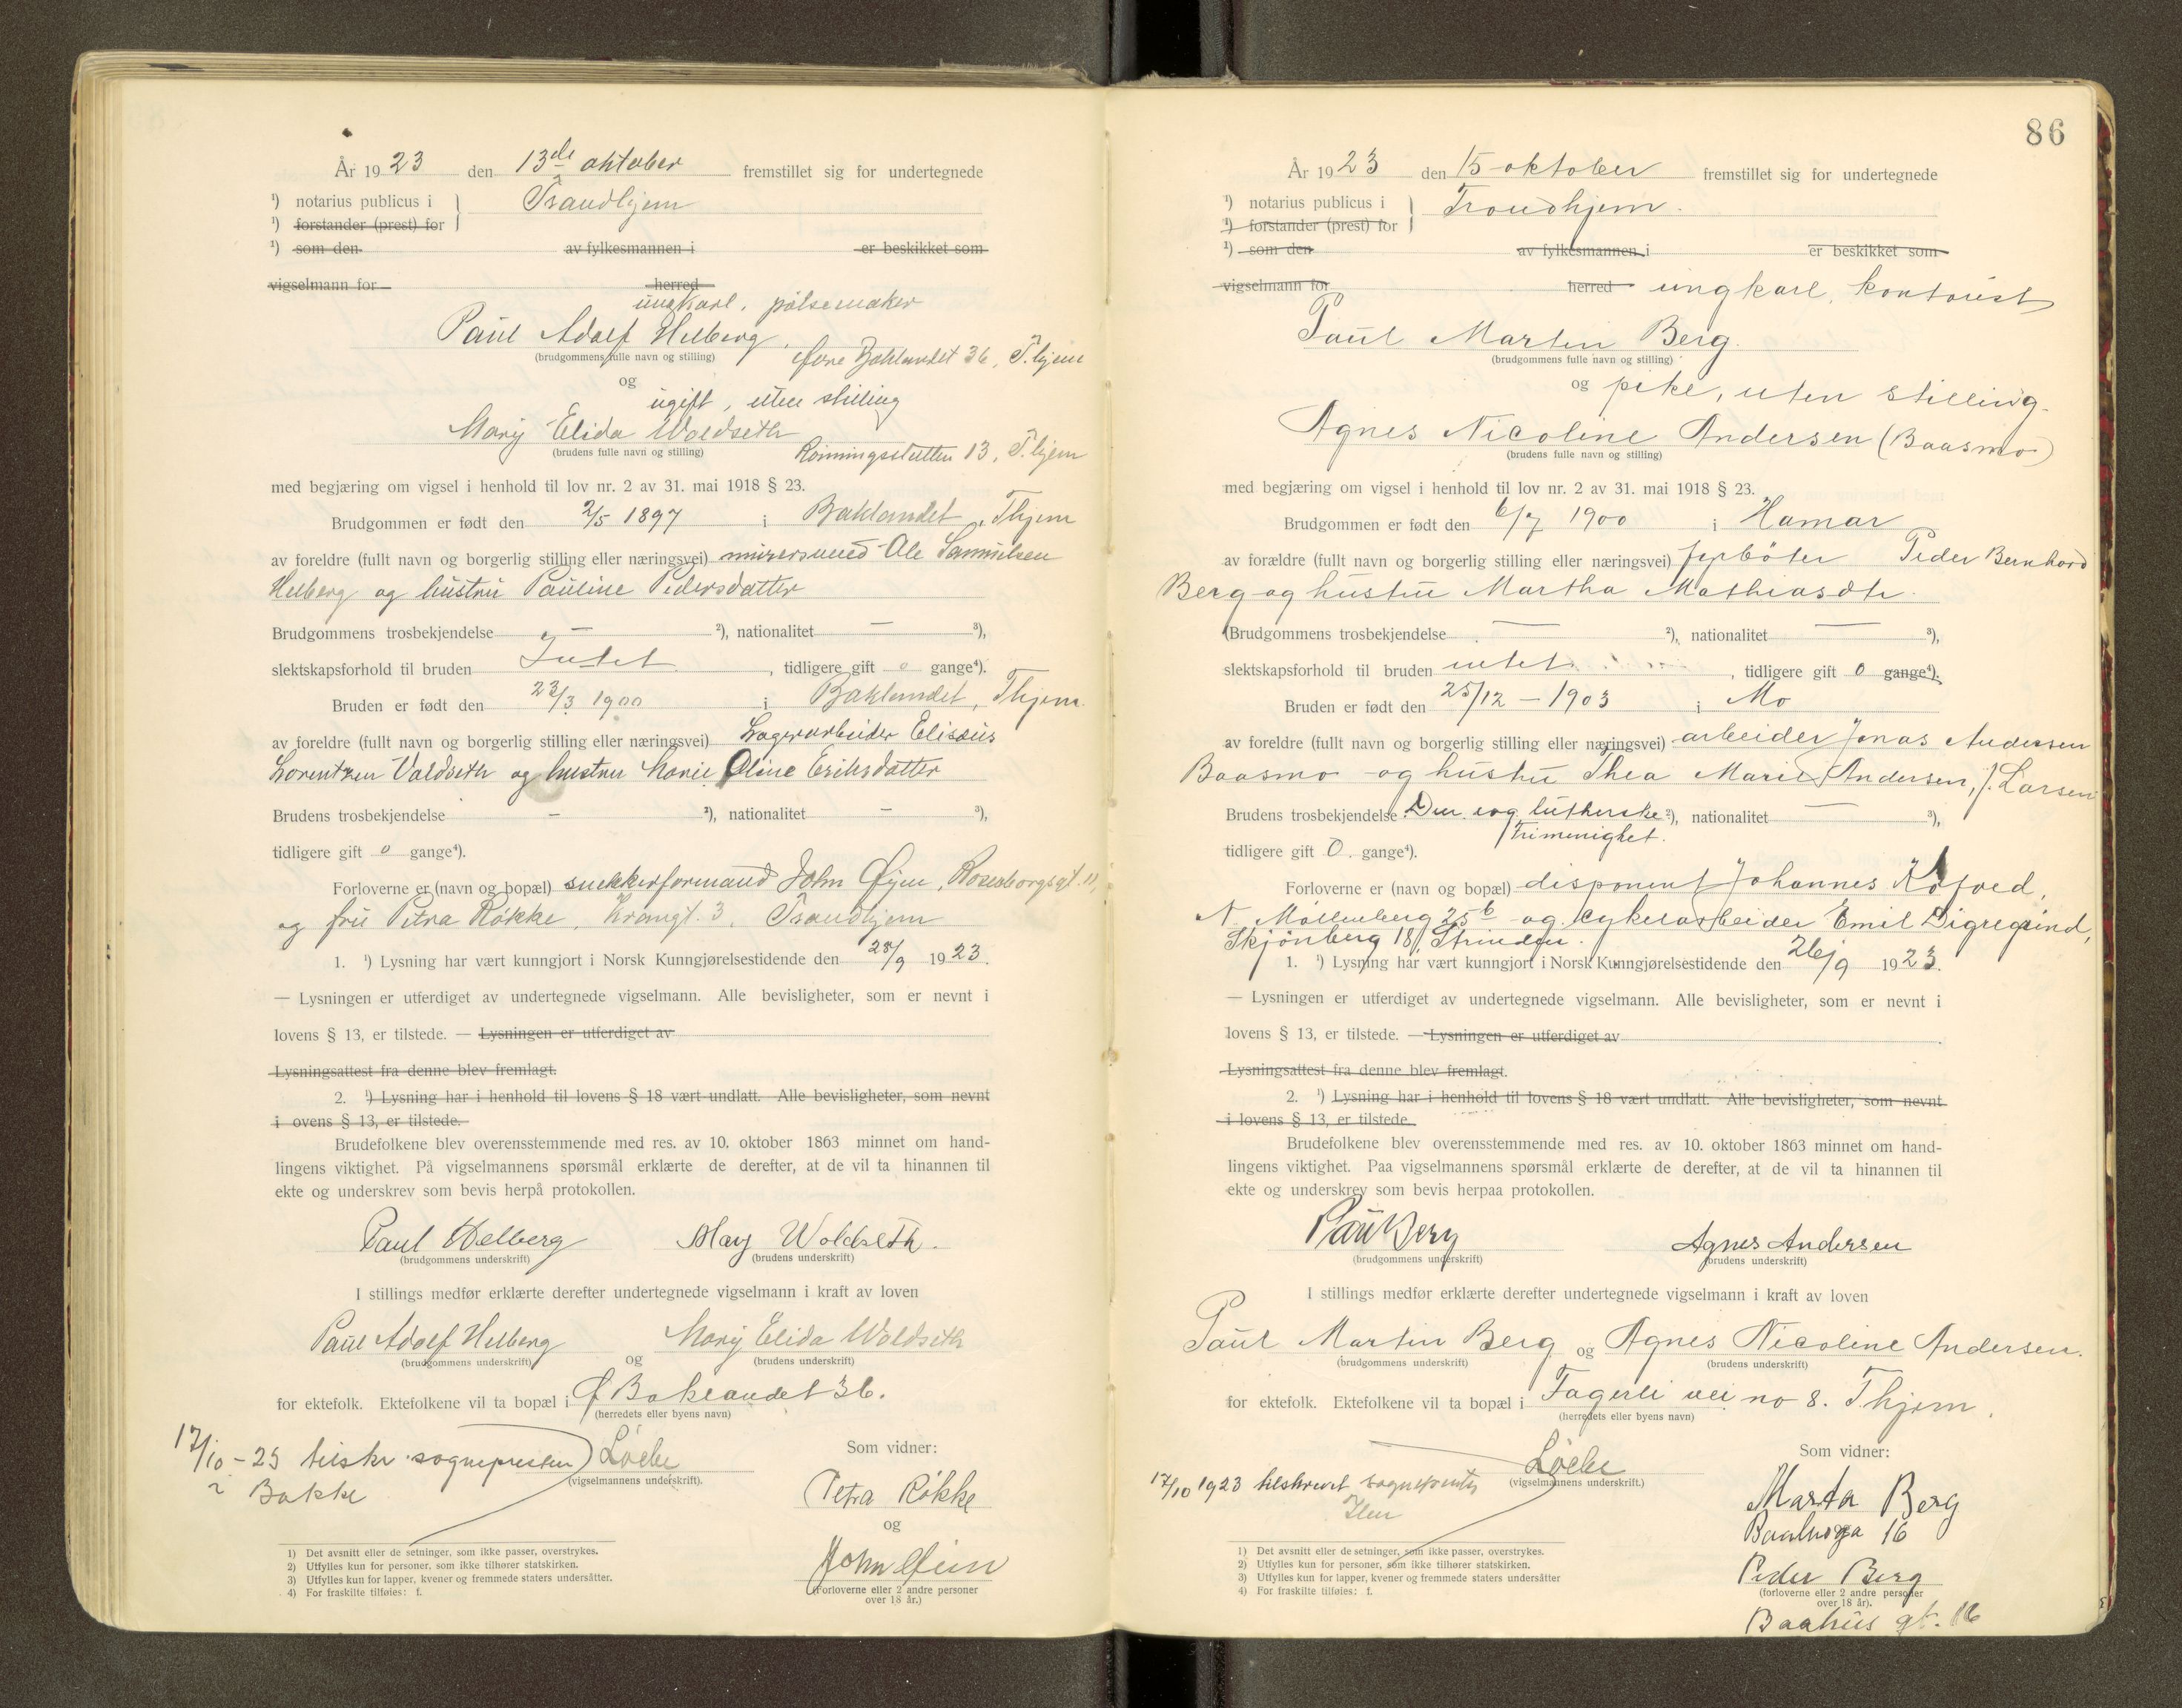 År 1923 den 13de oktober fremstillet sig for undertegnede
¹) notarius publicus i } Trondhjem
¹) forstander (prest) for
¹) som den av fylkesmannen i er beskikket som
vigselmann for herred
ungkarl, pølsemaker
Paul Adolf Helberg,
(brudgommens fulle navn og stilling) Øvre Baklandet 36, T.hjem
og
ugift, uten stilling
Mary Elida Woldseth
(brudens fulle navn og stilling) Rønningsletten 13, T.hjem
med begjæring om vigsel i henhold til lov nr. 2 av 31. mai 1918 § 23.
Brudgommen er født den 2/5 1897 i Baklandet, Thjem
av foreldre (fullt navn og borgerlig stilling eller næringsvei) murersvend Ole Samuelsen
Helberg og hustru Pauline Pedersdatter
Brudgommens trosbekjendelse — ²), nationalitet — ³),
slektskapsforhold til bruden Intet, tidligere gift 0 gange⁴).
Bruden er født den 23/3 1900 i Baklandet, Thjem.
av foreldre (fullt navn og borgerlig stilling eller næringsvei) Lagerarbeider Elisæus
Lorentzen Valdseth og hustru Marie Oline Eriksdatter
Brudens trosbekjendelse - ²), nationalitet - ³),
tidligere gift 0 gange⁴).
Forloverne er (navn og bopæl) snekkerformand John Øyen, Rosenborgsgt. 11,
og fru Petra Røkke, Kramgt. 3, Trondhjem
1. ¹) Lysning har vært kunngjort i Norsk Kunngjørelsestidende den 28/9 1923.
— Lysningen er utferdiget av undertegnede vigselmann. Alle bevisligheter, som er nevnt i
lovens § 13, er tilstede. — Lysningen er utferdiget av
Lysningsattest fra denne blev fremlagt.
2. ¹) Lysning har i henhold til lovens § 18 vært undlatt. Alle bevisligheter, som nevnt
i ovens § 13, er tilstede.
Brudefolkene blev overensstemmende med res. av 10. oktober 1863 minnet om hand-
lingens viktighet. På vigselmannens spørsmål erklærte de derefter, at de vil ta hinannen til
ekte og underskrev som bevis herpå protokollen.
Paul Helberg Mary Woldseth.
(brudgommens underskrift) (brudens underskrift)
I stillings medfør erklærte derefter undertegnede vigselmann i kraft av loven
Paul Adolf Helberg og Mary Elida Woldseth
(brudgommens underskrift) (brudens underskrift)
for ektefolk. Ektefolkene vil ta bopæl i Ø Baklandet 36.
(herredets eller byens navn)
17/10 - 23 tilskr. sognepresten
i Bakke
(vigselmannens underskrift).
Som vidner:
Petra Røkke
og
John Øien
(Forloverne eller 2 andre personer
over 18 år.)
1) Det avsnitt eller de setninger, som ikke passer, overstrykes.
2) Utfylles kun for personer, som ikke tilhører statskirken.
3) Utfylles kun for lapper, kvener og fremmede staters undersåtter.
4) For fraskilte tilføies: f.
86
År 1923 den 15 oktober fremstillet sig for undertegnede
¹) notarius publicus i } Trondhjem.
¹) forstander (prest) for
¹) som den av fylkesmannen i er beskikket som
vigselmann for herred ungkarl, kontorist
Paul Martin Berg.
(brudgommens fulle navn og stilling)
og pike, uten stilling.
Agnes Nicoline Andersen (Baasmo)
(brudens fulle navn og stilling)
med begjæring om vigsel i henhold til lov nr. 2 av 31. mai 1918 § 23.
Brudgommen er født den 6/7 1900 i Hamar
av forældre (fullt navn og borgerlig stilling eller næringsvei) fyrbøter Peder Bernhard
Berg og hustru Martha Mathiasdtr.
(Brudgommens trosbekjendelse — ²), nationalitet — ³),
slektskapsforhold til bruden intet, tidligere gift 0 gange⁴).
Bruden er født den 25/12 - 1903 i Mo
av foreldre (fullt navn og borgerlig stilling eller næringsvei) arbeider Jonas Andersen
Baasmo og hustru Thea Marie Andersen, f. Larsen
Brudens trosbekjendelse Den evg. lutherske ²), nationalitet — ³),
frimenighet.
tidligere gift 0. gange⁴).
Forloverne er (navn og bopæl) disponent Johannes Kofoed,
N. Møllenberg 25b og cykelarbeider Emil Digregrind,
Skjønberg 18, Strinden.
1. ¹) Lysning har vært kunngjort i Norsk Kunngjørelsestidende den 26/9 1923.
— Lysningen er utferdiget av undertegnede vigselmann. Alle bevisligheter, som er nevnt i
lovens § 13, er tilstede. — Lysningen er utferdiget av
Lysningsattest fra denne blev fremlagt.
2. ¹) Lysning har i henhold til lovens § 18 vært undlatt. Alle bevisligheter, som nevnt
i lovens § 13, er tilstede.
Brudefolkene blev overensstemmende med res. av 10. oktober 1863 minnet om hand-
lingens viktighet. Paa vigselmannens spørsmål erklærte de derefter, at de vil ta hinannen til
ekte og underskrev som bevis herpaa protokollen.
Paul Berg Agnes Andersen
(brudgommens underskrift) (brudens underskrift)
I stillings medfør erklærte derefter undertegnede vigselmann i kraft av loven
Paul Martin Berg og Agnes Nicoline Andersen.
(brudgommens underskrift) (brudens underskrift)
for ektefolk. Ektefolkene vil ta bopæl i Fagerli vei no 8. Thjem.
(herredets eller byens navn)
17/10 1923 tilskrevet sognepresten
Ilen
(vigselmannens underskrift.)
Som vidner:
Marta Berg
16
Peder Berg
(forloverne eller 2 andre personer
over 18 år).
Baahus gt. 16
1) Det avsnitt eller de setninger, som ikke passer, overstrykes.
2) Utfylles kun for personer, som ikke tilhører statskirken.
3) Utfylles kun for lapper, kvener og fremmede staters undersåtter
4) For fraskilte tilføies: f.